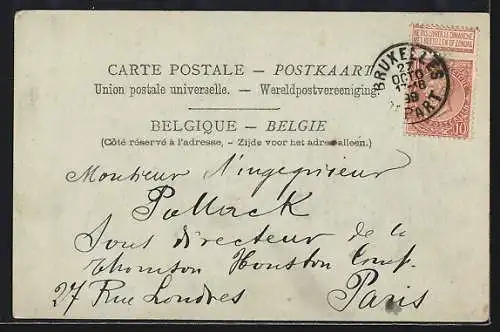 NE PAS LIVRER LE DIMANCHE
NIET BESTELLEN OP ZONDAG
BRUXELLES
27
OCTO
17-18
98
PART
10
CARTE POSTALE — POSTKAART
Union postale universelle. — Wereldpostvereeniging.
BELGIQUE — BELGIE
(Côté réservé à l'adresse, - Zijde voor het adres alleen.)
Monsieur l'ingegrieur
Pollack
Sous directeur de la
Thomson Houston Comp.
27 Rue Londres Paris